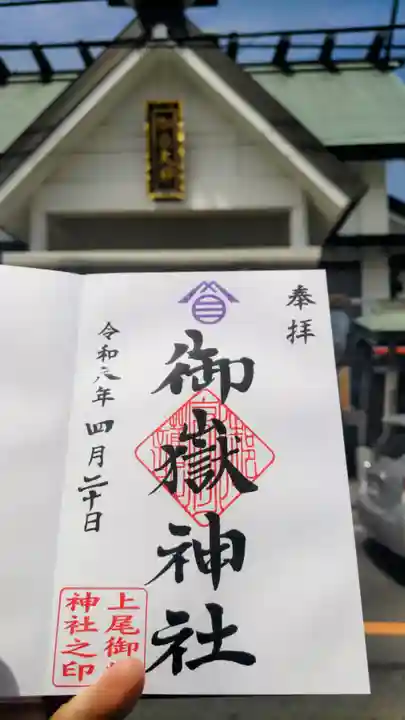 奉拝
御嶽神社
令和六年四月二十日
上尾御
神社之印